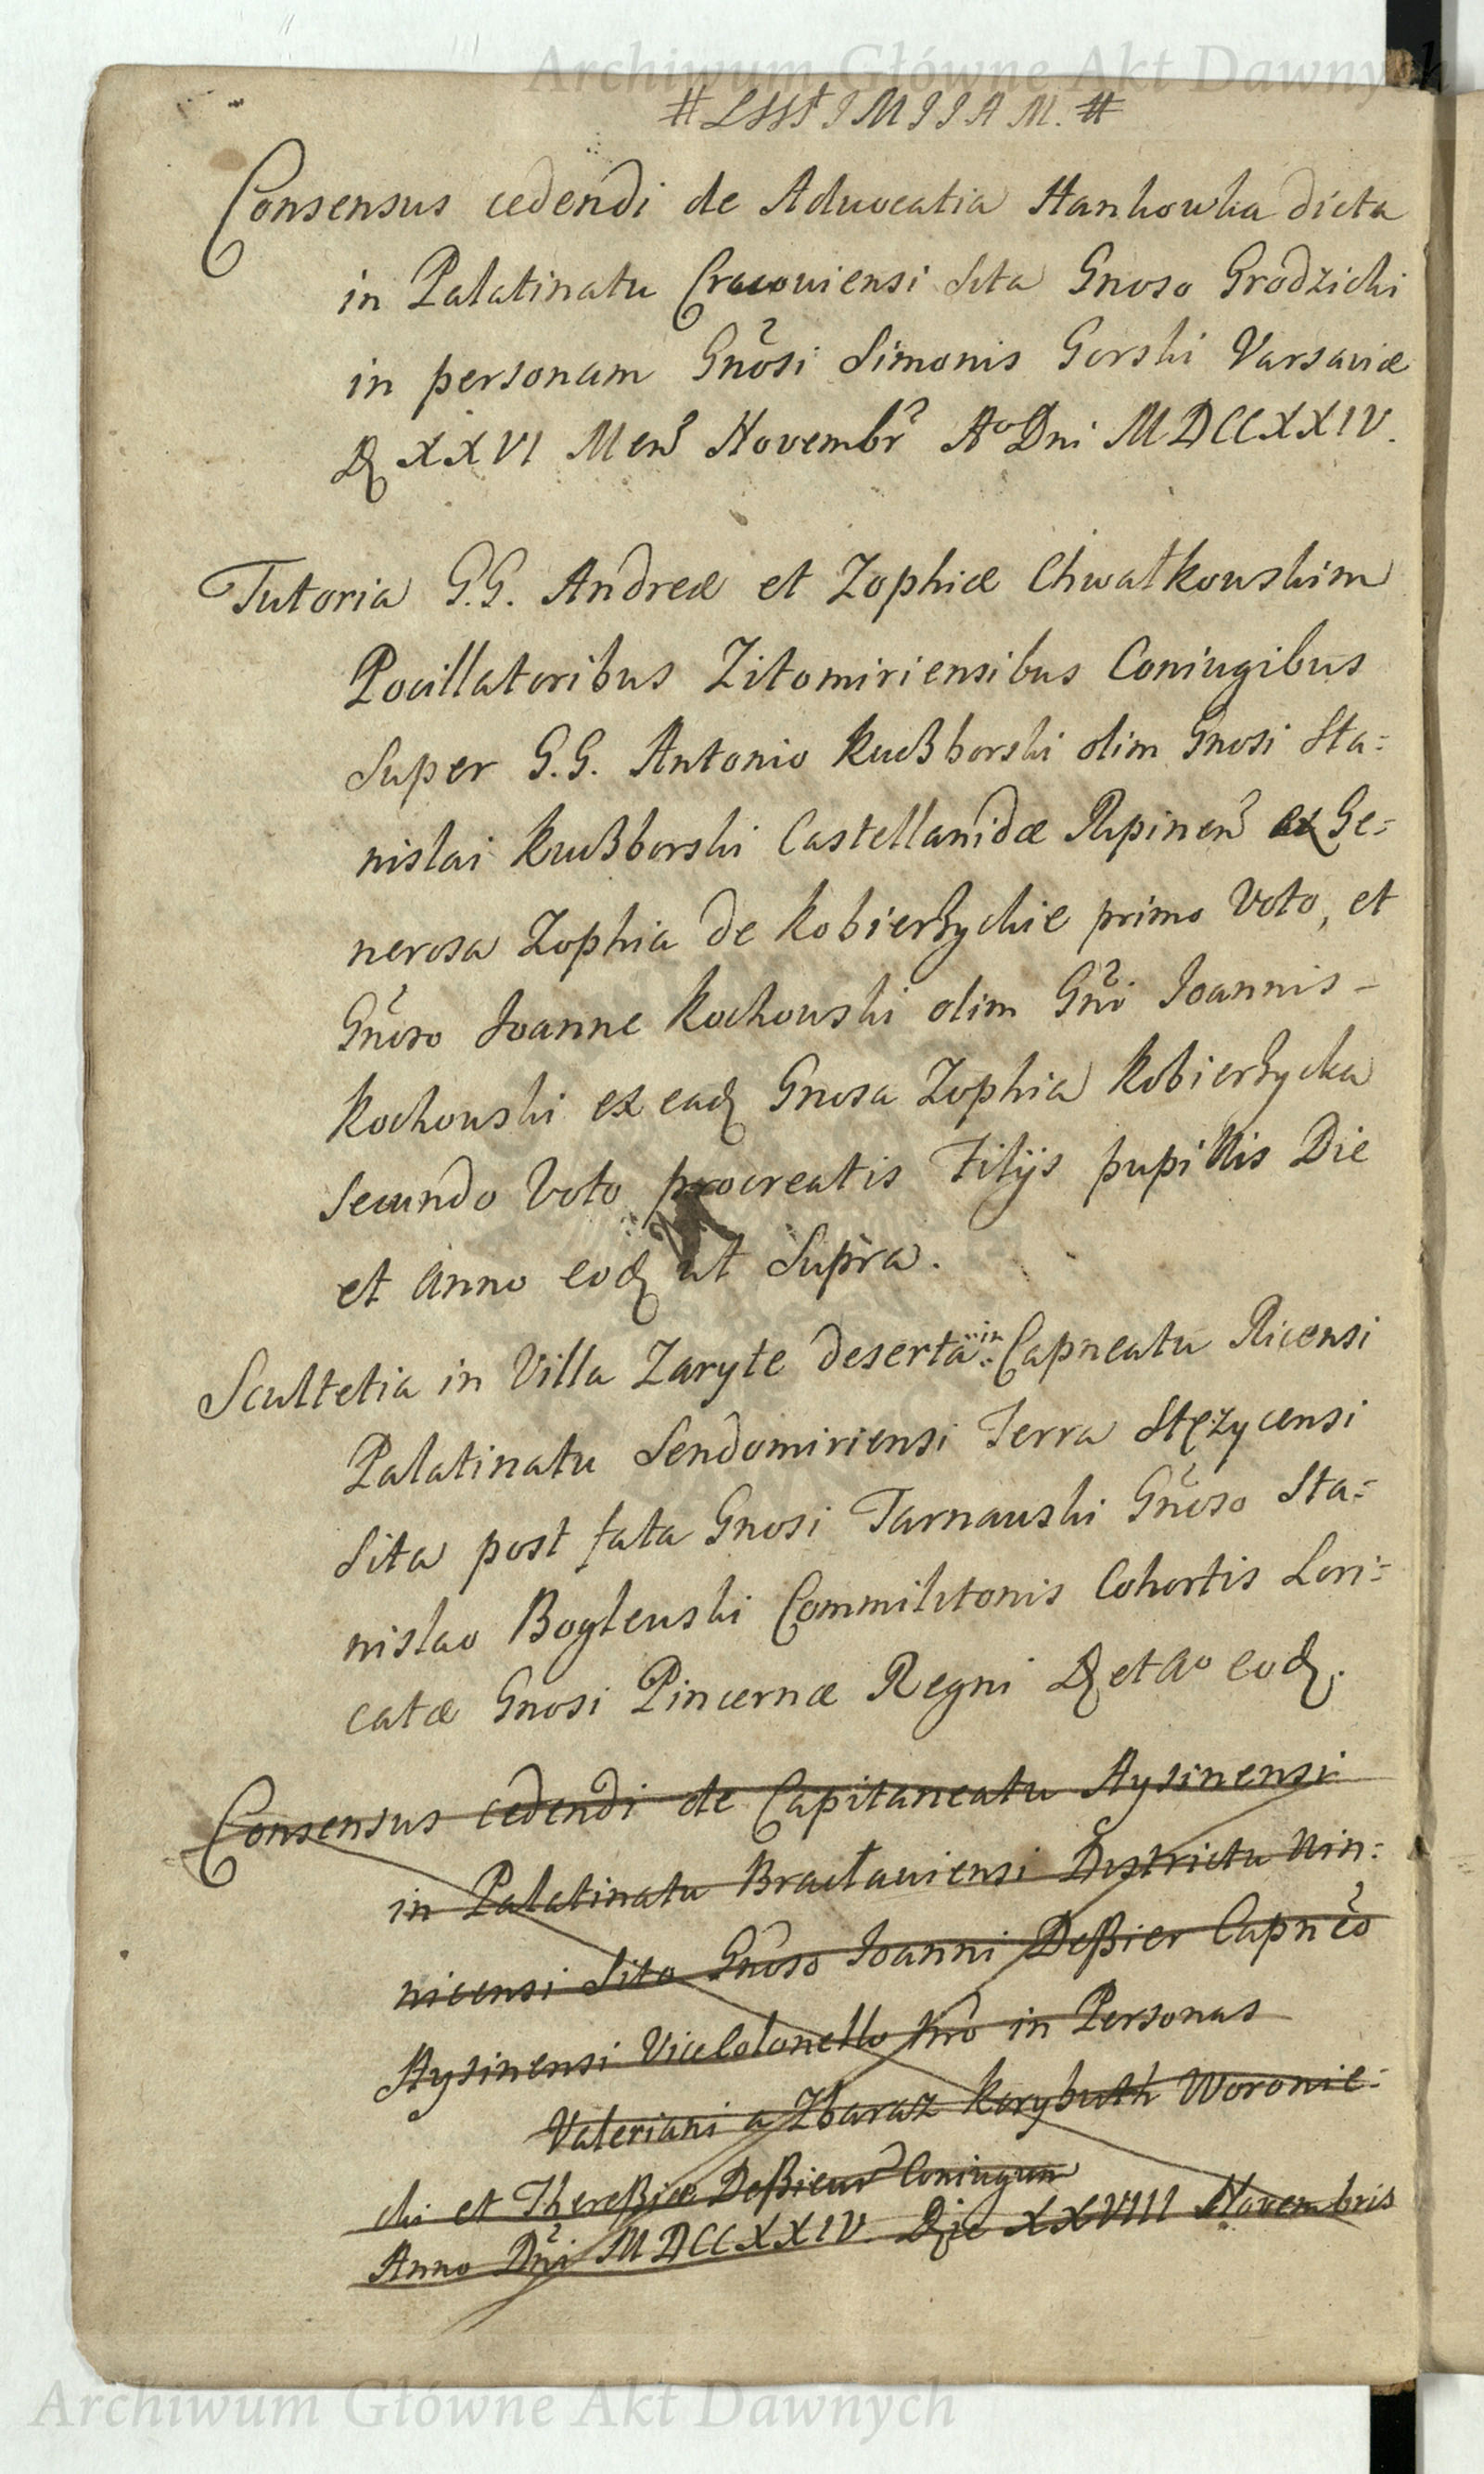 Archiwum Główne Akt Dawnych
Consensus cedendi de Aduocatia Hankowka dicta
in Palatinatu Cracouiensi sita Gnoso Grodzicki
in personam Gnosi Simonis Gorski Varsauiæ
D XXVI Mens Novembr Ao Dni MDCCXXIV.
Tutoria G.G. Andreæ et Zophiæ Chwałkowskim
Pocillatoribus Zitomiriensibus Coniugibus
super G.G. Antonio Kucßborski olim Gnosi Sta=
nislai Kucßborski Castellanidæ Rypinen ex Ge=
nerosa Zophia de Kobierzyckie primo Voto, et
Gnoso Joanne Kochowski olim Gni Joannis -
Kochowski ex ead Gnosa Zophia Kobierzycka
secundo Voto procreatis Filijs pupillis Die
et Anno eod ut supra.
Scultetia in Villa Zaryte deserta in Capneatu Ricensi
Palatinatu Sendomiriensi Terra Stęzycensi
sita post fata Gnosi Tarnawski Gnoso Sta=
nislao Boglewski Commilitonis Cohortis Lori=
catæ Gnosi Pincernæ Regni D et Ao eod.
Consensus cedendi de Capitaneatu Aysinensi
in Palatinatu Bracłauiensi Districtu Win=
nicensi sito Gnoso Joanni Deßier Capneo
Aysinensi ViceColonello Nro in Personas
Valeriani a Zbaraz Korybuth Woronie=
cki et Thereßiæ Deßieur Coniugum
Anno Dni MDCCXXIV. Die XXVIII Novembris
Archiwum Główne Akt Dawnych